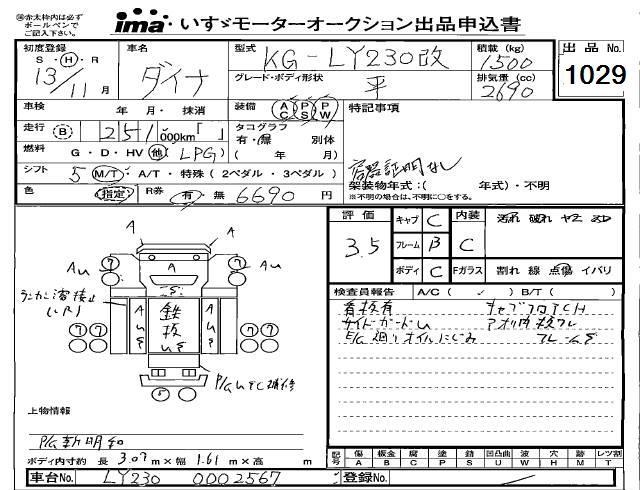 ※赤太枠内は必ず
ボールペンで
ご記入下さい。
ima いすゞモーターオークション出品申込書
初度登録 S・H・R
13/11月
車名
ダイナ
型式
KG-LY230改
積載 (kg)
1500
出品No.
1029
グレード・ボディ形状
平
排気量 (cc)
2690
車検 年 月・抹消
装備 AC PS PW
特記事項
走行 (B) 251,000km「 」
タコグラフ 有・無 別体
( 年 月)
燃料 G・D・HV 他( LPG )
容器証明なし
シフト 5 M/T・A/T・特殊(2ペダル・3ペダル)
架装物年式:( 年式)・不明
※不明の場合は、不明に○をする。
色 (指定)
R券 有・無 6690円
評価
3.5
キャブ C
フレーム B
ボディ C
内装
C
Fガラス 割れ 線 点傷 イバリ
検査員報告 A/C( ✓ ) B/T( )
看板有
サイドガードU
E/G廻りオイルにじみ
A
A
A
AU
AU
ランカン溶接止
鉄板
上物情報
P/G新明和
ボディ内寸約 長 3.07m×幅 1.61m×高 m
記号
傷 A
板金 B
腐 C
塗 P
錆 S
凹凸曲 U
波 W
穴 H
跡 M
レツ割 T
車台No. LY230 0002567
登録No.